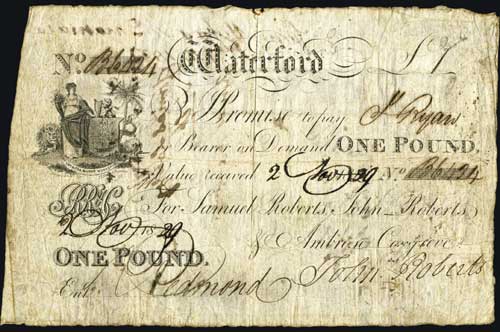 No. B6424 Waterford £1
I Promise to pay J. Ryan
or Bearer on Demand ONE POUND.
Value received 2 Nov. 1829 No. B6424
For Samuel Roberts, John Roberts,
2 Nov. 1829 & Ambrose Congreve
ONE POUND. John Roberts
Entd. Redmond